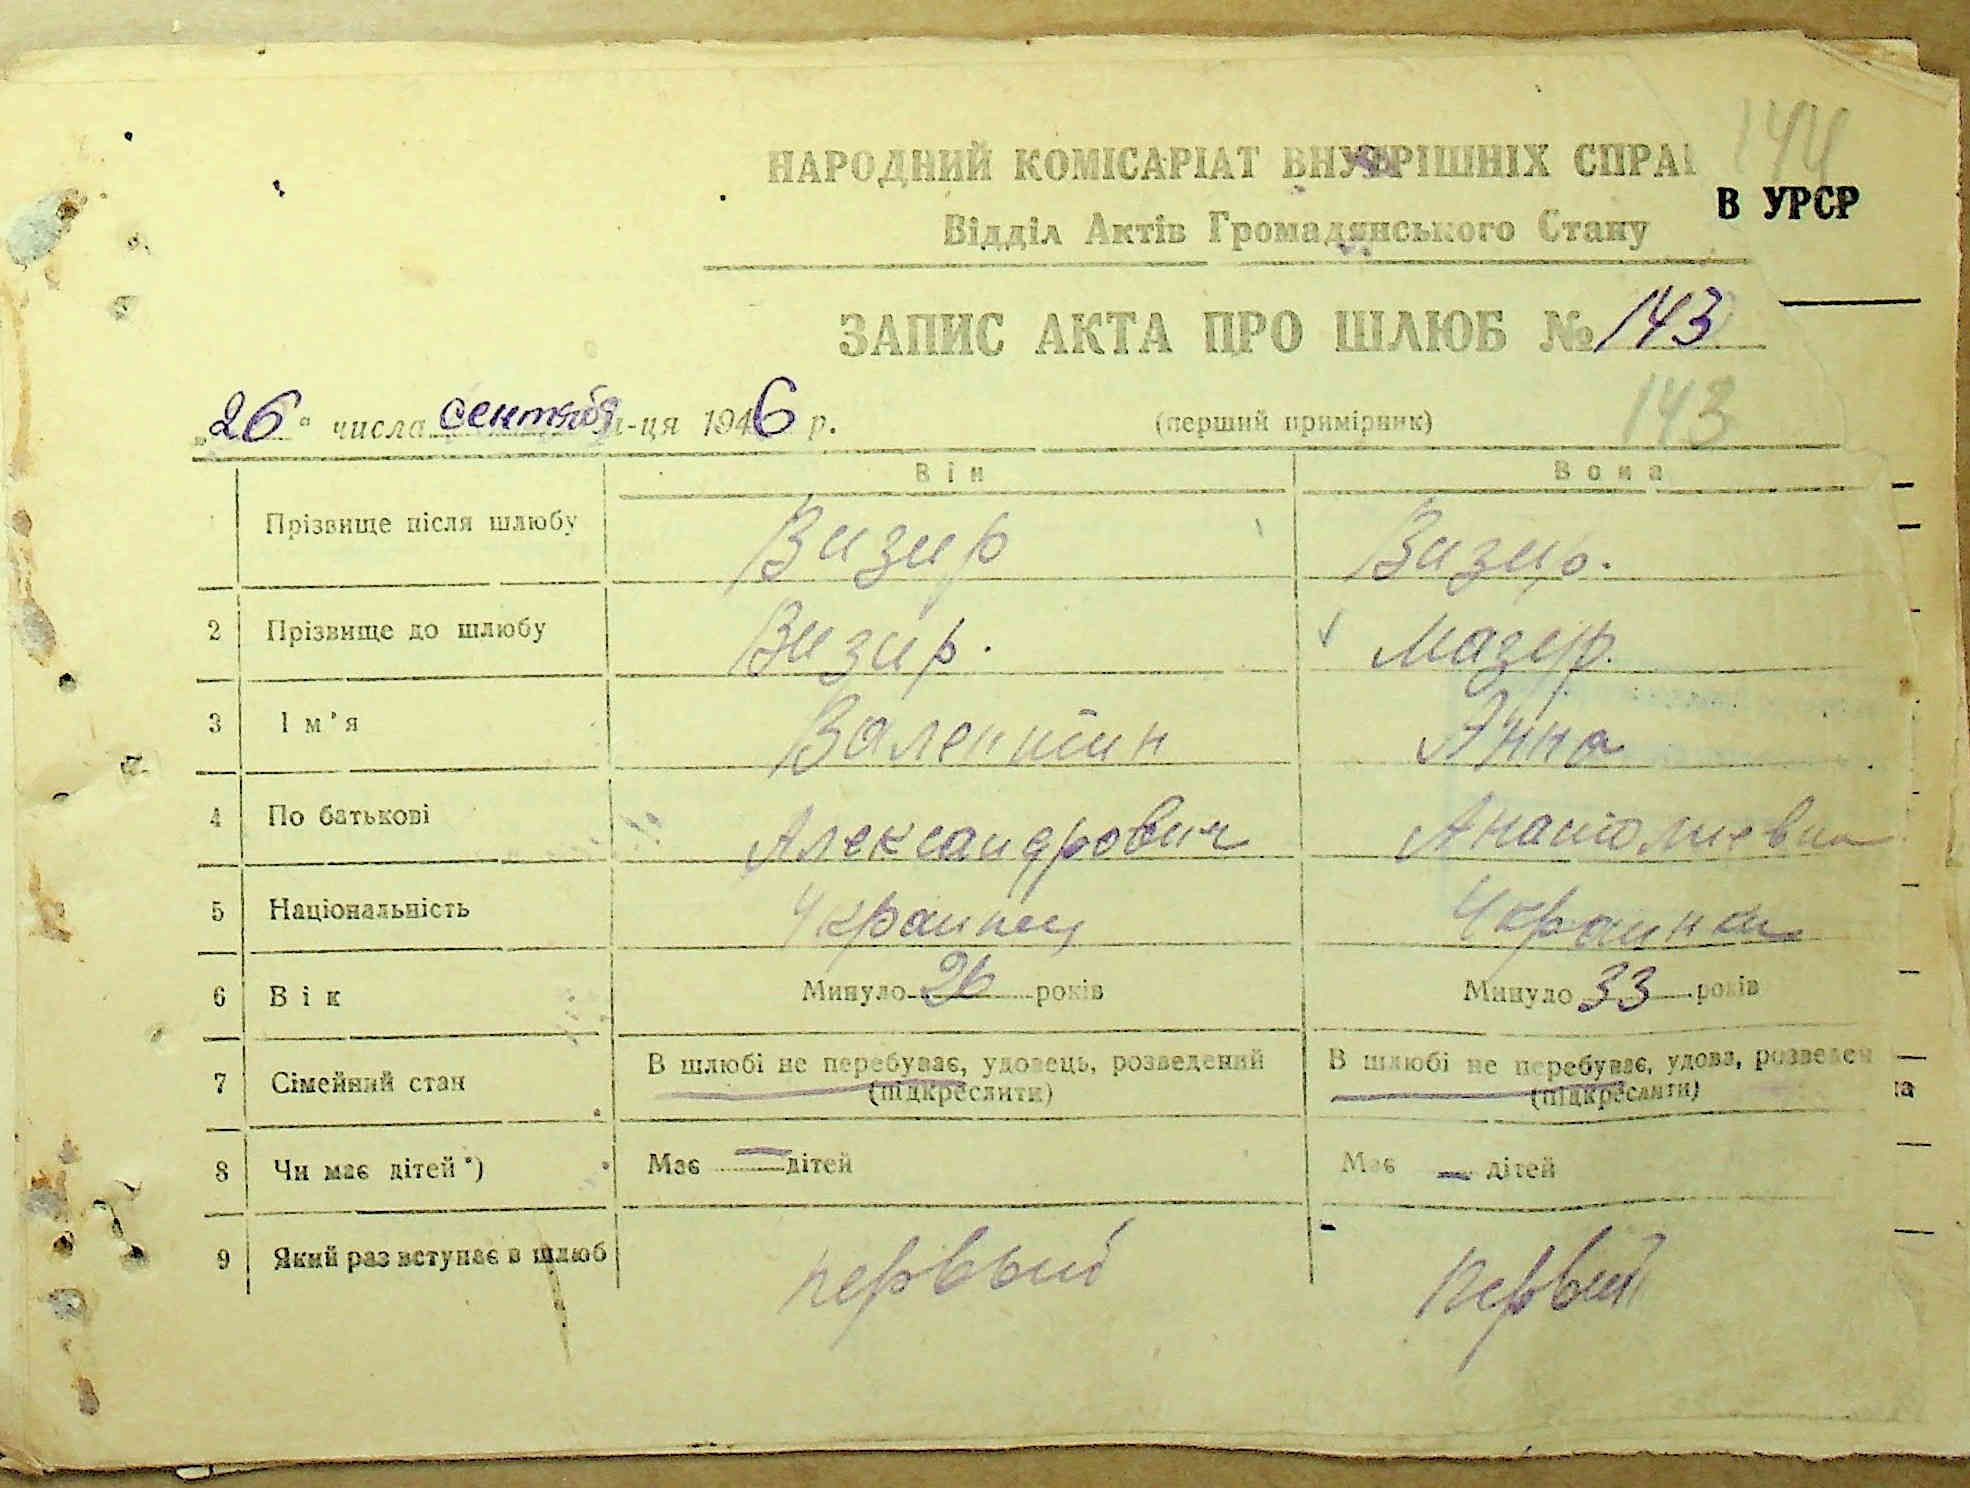 144
НАРОДНИЙ КОМІСАРІАТ ВНУТРІШНІХ СПРАВ
В УРСР
Відділ Актів Громадянського Стану
ЗАПИС АКТА ПРО ШЛЮБ № 143
„26“ числа сентября м-ця 1946 р. (перший примірник) 143
Він Вона
Прізвище після шлюбу Визир Визир.
2 Прізвище до шлюбу Визир. Мазур.
3 Ім'я Валентин Анна
4 По батькові Александрович Анатолиевна
5 Національність Украинец Украинка
6 Вік Минуло 26 років Минуло 33 років
7 Сімейний стан В шлюбі не перебуває, удовець, розведений В шлюбі не перебуває, удова, розведен
(підкреслити) (підкреслити)
8 Чи має дітей *) Має — дітей Має — дітей
9 Який раз вступає в шлюб первый первый